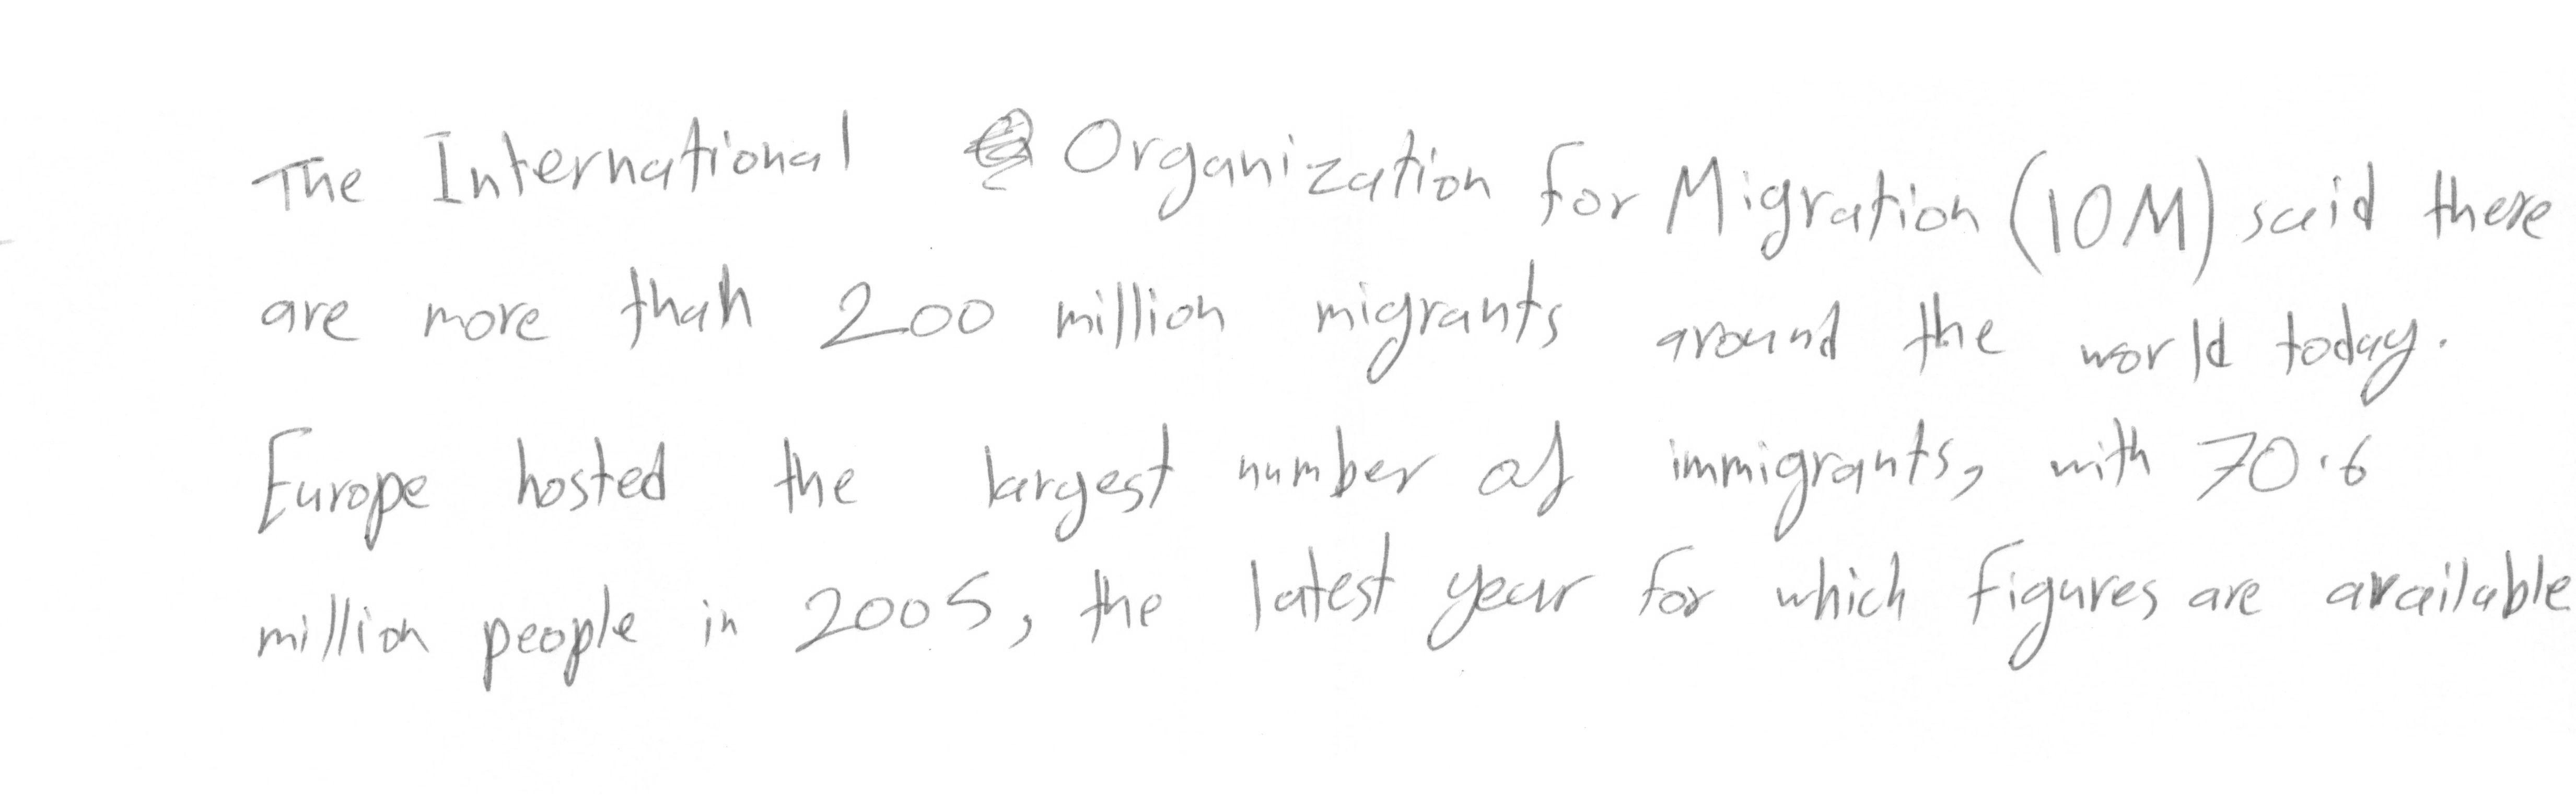 The International Organization for Migration (IOM) said there
are more than 200 million migrants around the world today.
Europe hosted the largest number of immigrants, with 70.6
million people in 2005, the latest year for which figures are available